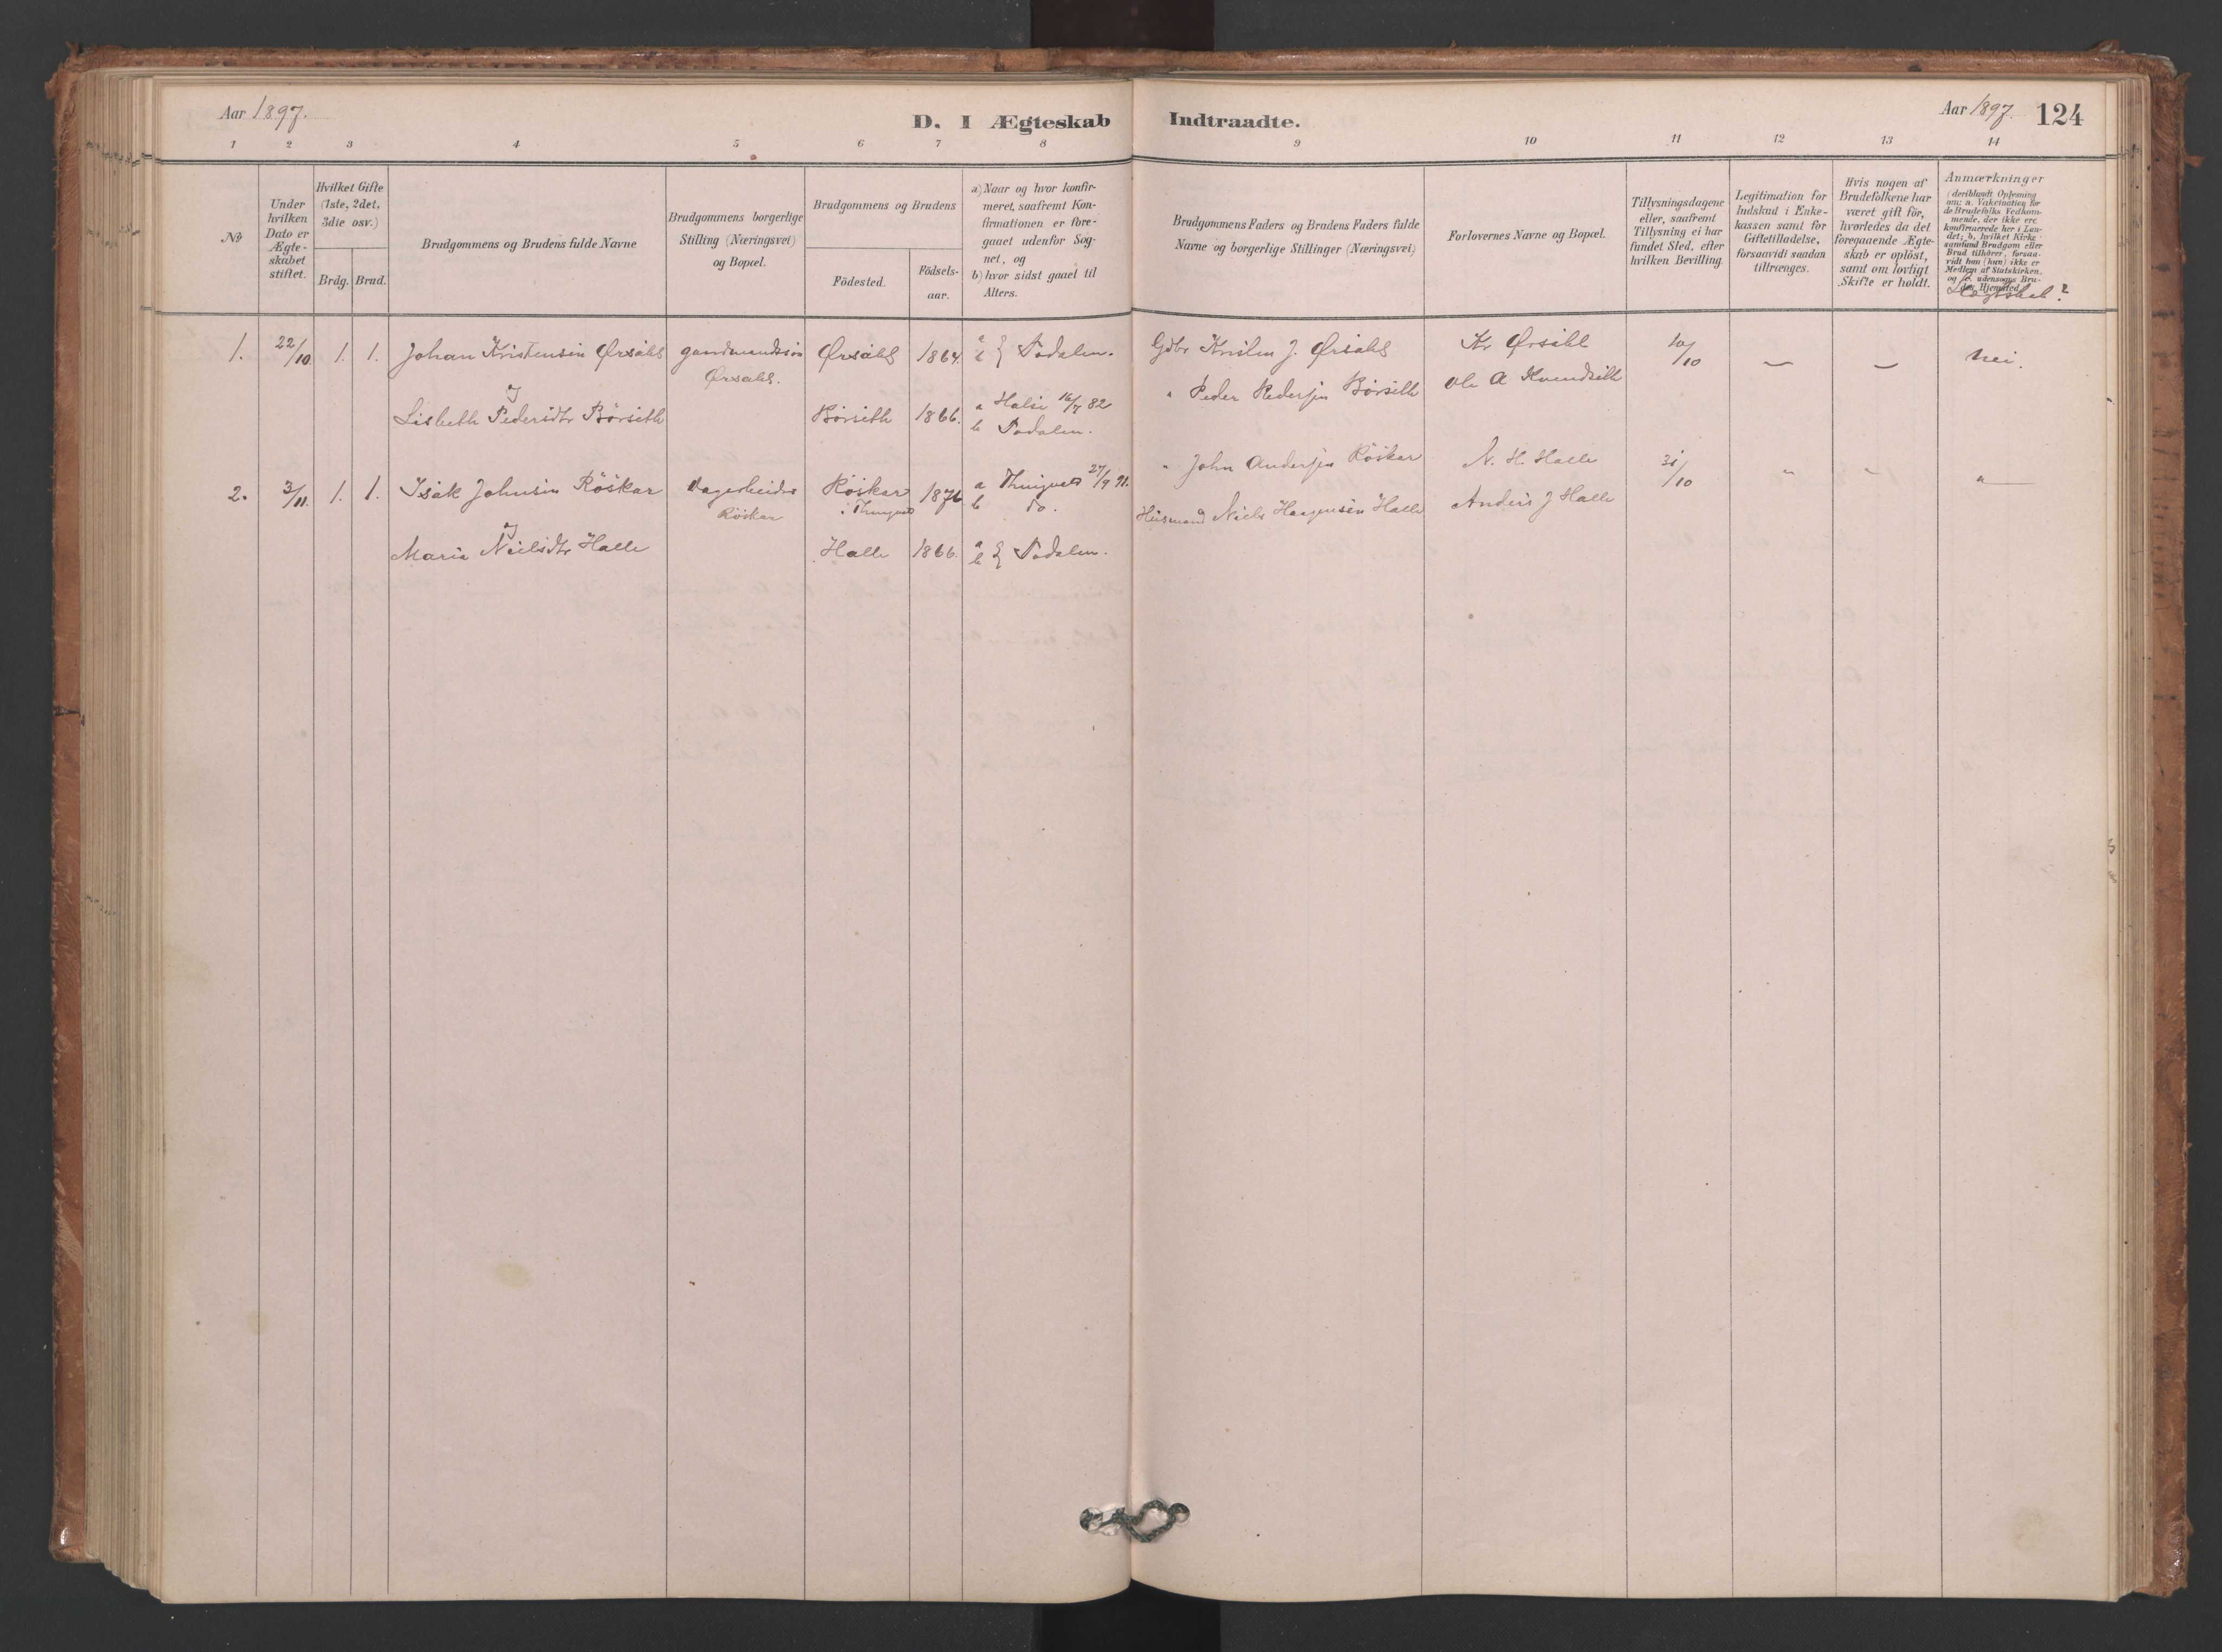 Aar 1897.
D. I Ægteskab Indtraadte.
Aar 1897. 124
1 2 3 4 5 6 7 8 9 10 11 12 13 14
No
Under
hvilken
Dato er
Ægte-
skabet
stiftet.
Hvilket Gifte
(1ste, 2det,
3die osv.)
Brdg. Brud.
Brudgommens og Brudens fulde Navne
Brudgommens borgerlige
Stilling (Næringsvei)
og Bopæl.
Brudgommens og Brudens
Födested.
Födsels-
aar.
a) Naar og hvor konfir-
meret, saafremt Kon-
firmationen er fore-
gaaet udenfor Sog-
net, og
b) hvor sidst gaaet til
Alters.
Brudgommens Faders og Brudens Faders fulde
Navne og borgerlige Stillinger (Næringsvei)
Forlovernes Navne og Bopæl.
Tillysningsdagene
eller, saafremt
Tillysning ei har
fundet Sted, efter
hvilken Bevilling
Legitimation for
Indskud i Enke-
kassen samt for
Giftetilladelse,
forsaavidt saadan
tiltrænges.
Hvis nogen af
Brudefolkene har
været gift för,
hvorledes da det
foregaaende Ægte-
skab er oplöst,
samt om lovligt
Skifte er holdt.
Anmærkninger
(deriblandt Oplysning
om: a. Vakcination for
de Brudefolks Vedkom-
mende, der ikke ere
konfirmerede her i Lan-
det; b. hvilket Kirke-
samfund Brudgom eller
Brud tilhörer, forsaa-
vidt han (hun) ikke er
Medlem af Statskirken,
og c. udensogns Bru-
des Hjemsted.
Slægtskab?
1. 22/10. 1. 1. Johan Kristensen Ørsahl gaardmandssön Ørsahl 1864. a b } Todalen.
Ørsahl.
J
Lisbeth Pedersdtr Börseth Börseth 1866. a Halse 16/7 82
b Todalen.
Gdbr Kristen J. Ørsahl Kr Ørsahl 10/10 — — Nei.
" Peder Pedersen Börseth Ole A Kvendseth
2. 3/11. 1. 1. Isak Johnsen Röskar Dagarbeider Röskar 1876 a Thingvold 27/9 91.
Röskar i Thingvold b do.
J
Marie Nielsdtr Halle Halle 1866. a b } Todalen.
" John Andersen Röskar N. H. Halle 31/10 " " "
Husmand Niels Haagensen Halle Anders J Halle